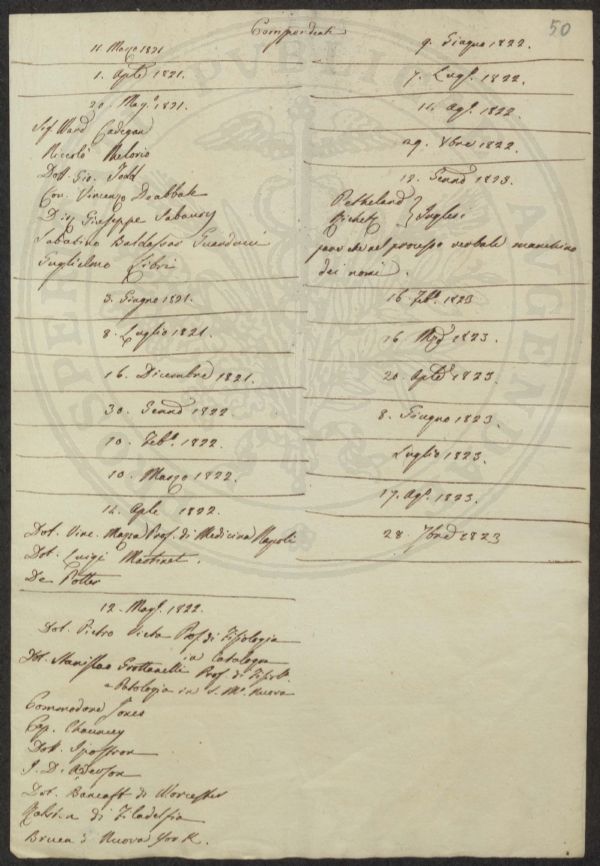 50
Corrispondenti
11. Marzo 1821
1. Aple 1821.
20. Mago 1821.
Sig. Ward Cadegan
Niccolò Melorio
Dott. Gio. Todd
Cav. Vincenzo Drabbak
Giuseppe
Sabatino Baldassar Guarducci
Guglielmo Libri
3. Giugno 1821.
8. Luglio 1821.
16. Dicembre 1821.
30. Genno 1822.
10. Febo. 1822.
10. Marzo 1822.
14. Aple 1822.
Dot. Vinc. Prof. di Medicina Napoli
Dot. Luigi Martinet.
De Potter
12. Mago. 1822.
Dot. Pietro Vieta Prof. di Fisologia
in Catalogna
Dot. Stanislao Grottanelli Prof. di
e Patologia in S. Ma. Nuova
Commodore Jones
Cap. Chauncey
Dott.
J. D.
Dot. Bancroft di Worcester
di Filadelfia
Bruen di Nuova York.
9. Giugno 1822.
7. Lugo. 1822.
14. Ago. 1822.
29. Xbre 1822.
12. Genno 1823.
Petheland
} Inglesi
pare che nel processo verbale manchino
dei nomi.
16. Febo 1823
16. Mzo 1823.
20. Aple 1823.
8. Giugno 1823.
Luglio 1823.
17. Ago. 1823.
28. 7bre 1823
PER
PUBLIC
ANGENDA